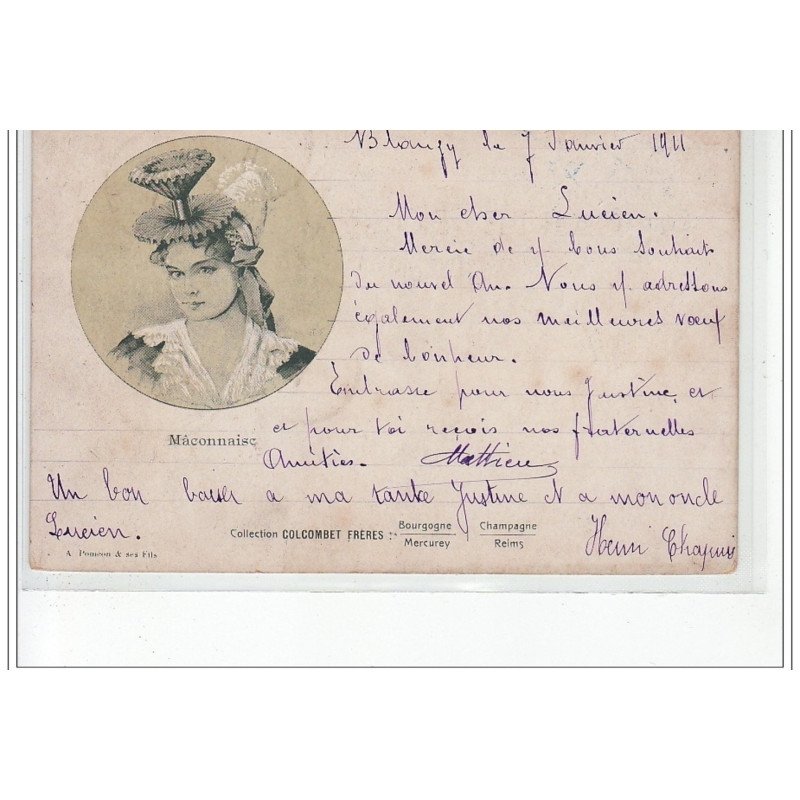 Blanzy le 7 Janvier 1911
Mon cher Lucien.
Mercie de y bons souhait
du nouvel An. Nous y adressons
également nos meilleures vœux
de bonheur.
Embrasse pour nous Justine et
et pour toi reçois nos fraternelles
Amitiés. Mathieu
Mâconnaise
Un bon baiser a ma tante Justine et a mon oncle
Lucien.
Henri Chapuis
Collection COLCOMBET FRÈRES : Bourgogne Mercurey Champagne Reims
A. Poméon & ses Fils